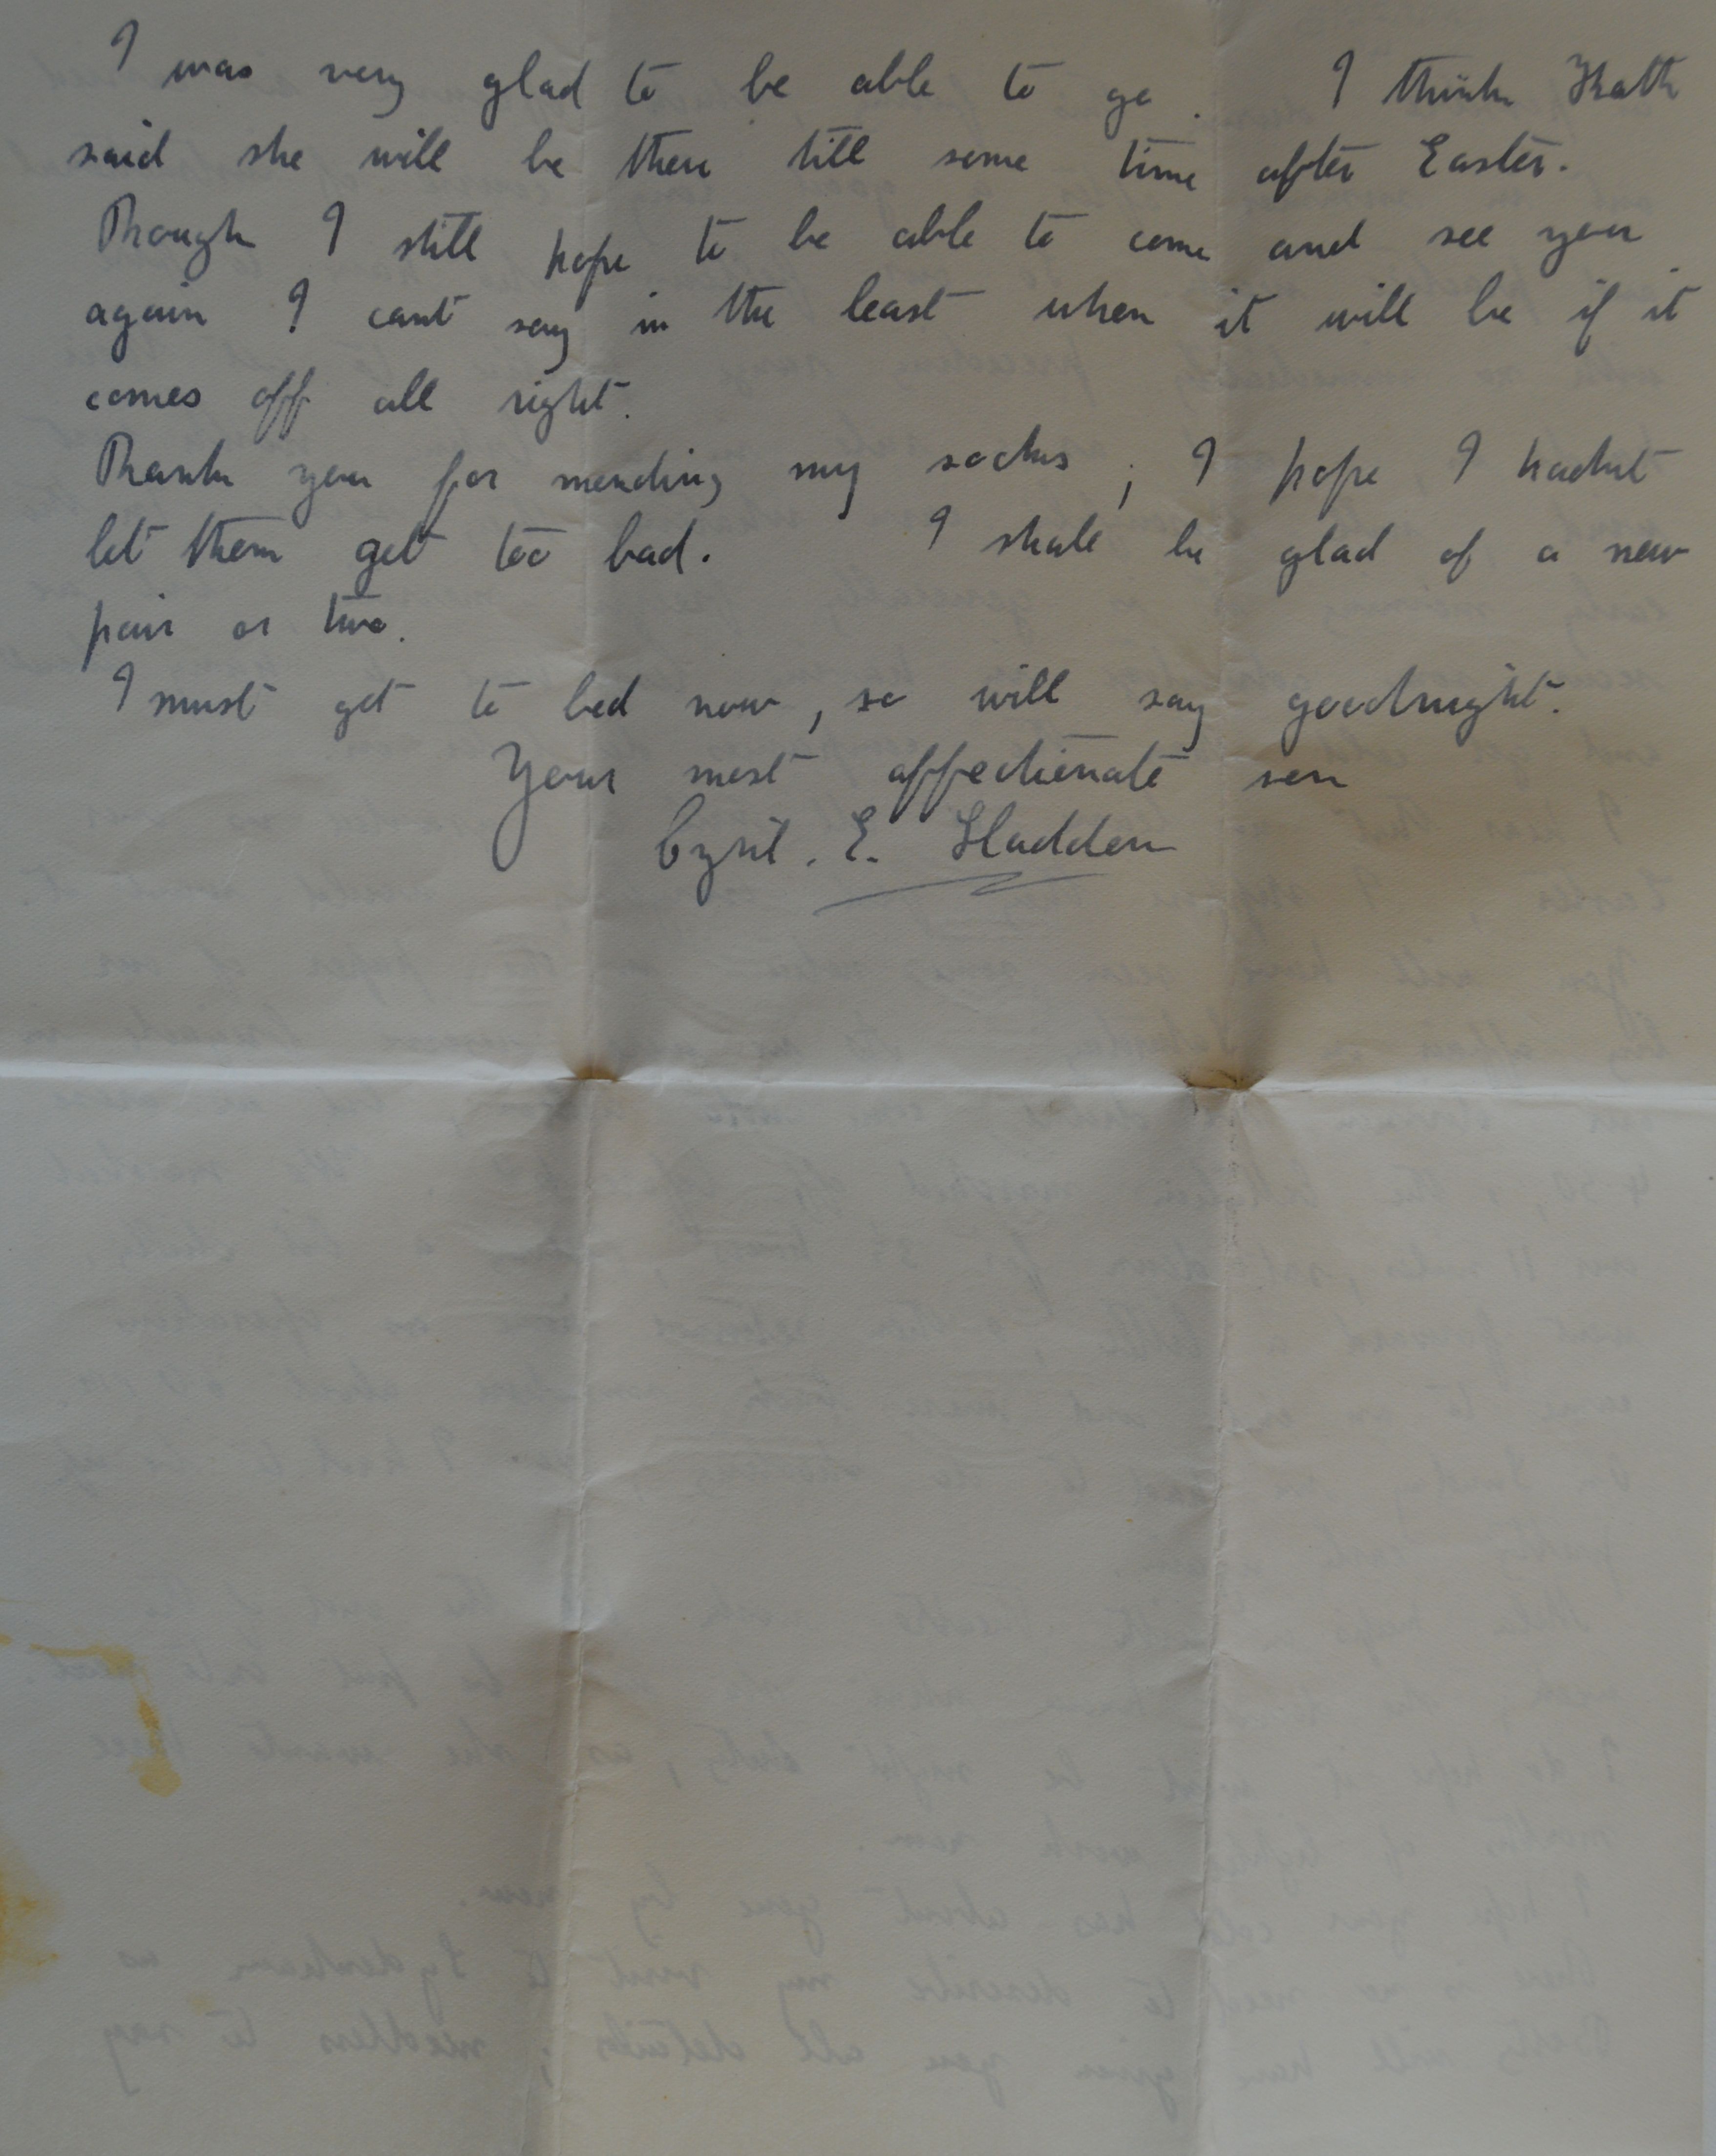 I was very glad to be able to go. I think Kath
said she will be there till some time after Easter.
Though I still hope to be able to come and see you
again I cant say in the least when it will be if it
comes off all right.
Thank you for mending my socks ; I hope I hadnt
let them get too bad. I shall be glad of a new
pair or two.
I must get to bed now, so will say goodnight.
Your most affectionate son
Cyril. E. Sladden